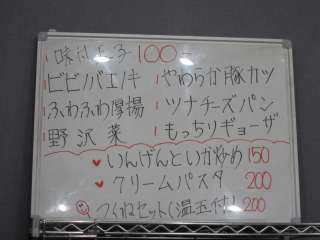 味付玉子 100-
ビビンバエノキ やわらか豚カツ
ふわふわ厚揚 ツナチーズパン
野沢菜 もっちりギョーザ
いんげんといか炒め 150
クリームパスタ 200
つくねセット(温玉付) 200